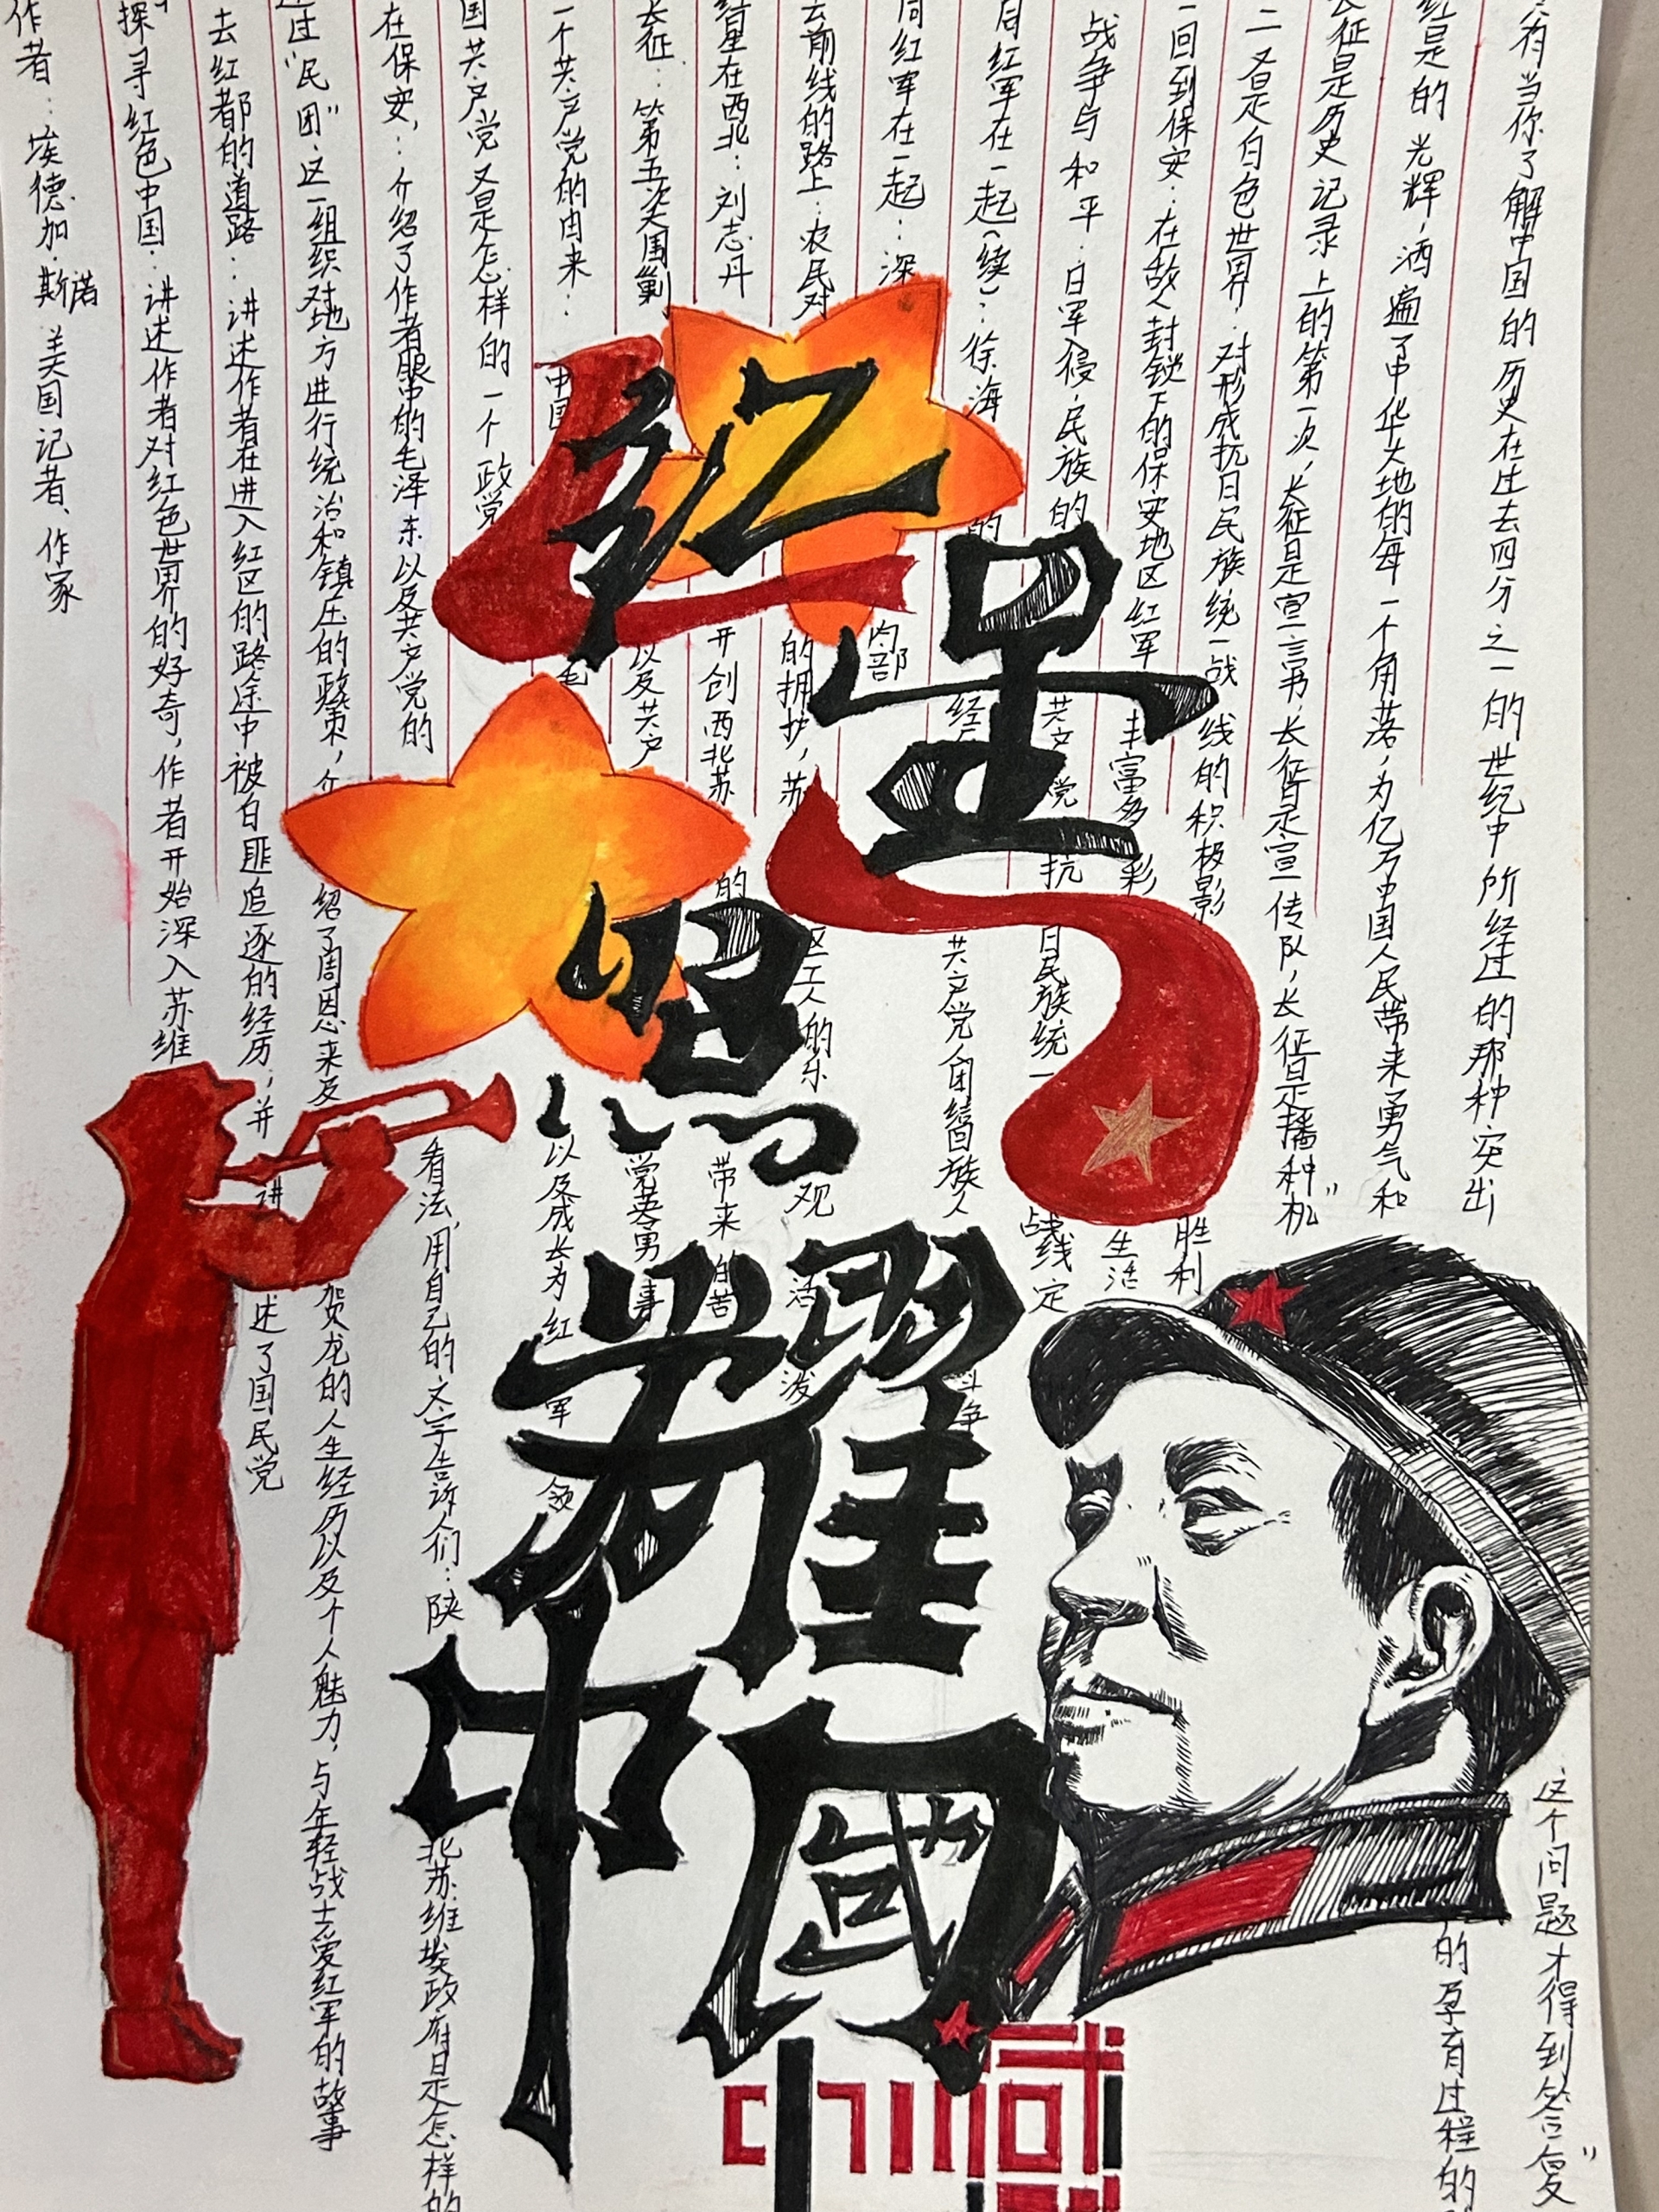 红星照耀中国
作者：埃德加·斯诺 美国记者、作家
探寻红色中国：讲述作者对红色世界的好奇，作者开始深入苏维
去红都的道路：讲述作者在进入红区的路途中被白匪追逐的经历，并讲述了国民党
过“民团”这一组织对地方进行统治和镇压的政策，介绍了周恩来及贺龙的人生经历以及个人魅力，与年轻战士爱红军的故事
在保安：介绍了作者眼中的毛泽东以及共产党的看法，用自己的文字告诉们：陕北苏维埃政府是怎样的
国共产党又是怎样的一个政党
一个共产党的由来：中国 毛 以及成长为红军领
长征：第五次大围剿 以及共产党英勇事
红星在西北：刘志丹 开创西北苏 的 带来的苦
去前线的路上：农民对的拥护，苏区工人的乐观 活泼
同红军在一起：深 内部
同红军在一起（续）：徐海 的经历 共产党团结回族人 斗争
战争与和平：日军入侵，民族的 共产党抗日民族统一战线定
回到保安：在敌人封锁下的保安地区红军丰富多彩 生活
又是白色世界：对形成抗日民族统一战线的积极影 胜利
长征是历史记录上的第一次，长征是宣言书，长征是宣传队，长征是播种机”
红星的光辉，洒遍了中华大地的每一个角落，为亿万中国人民带来勇气和
只有当你了解中国的历史在过去四分之一的世纪中所经过的那种突出
的孕育过程的
这个问题才得到答复”
china
国